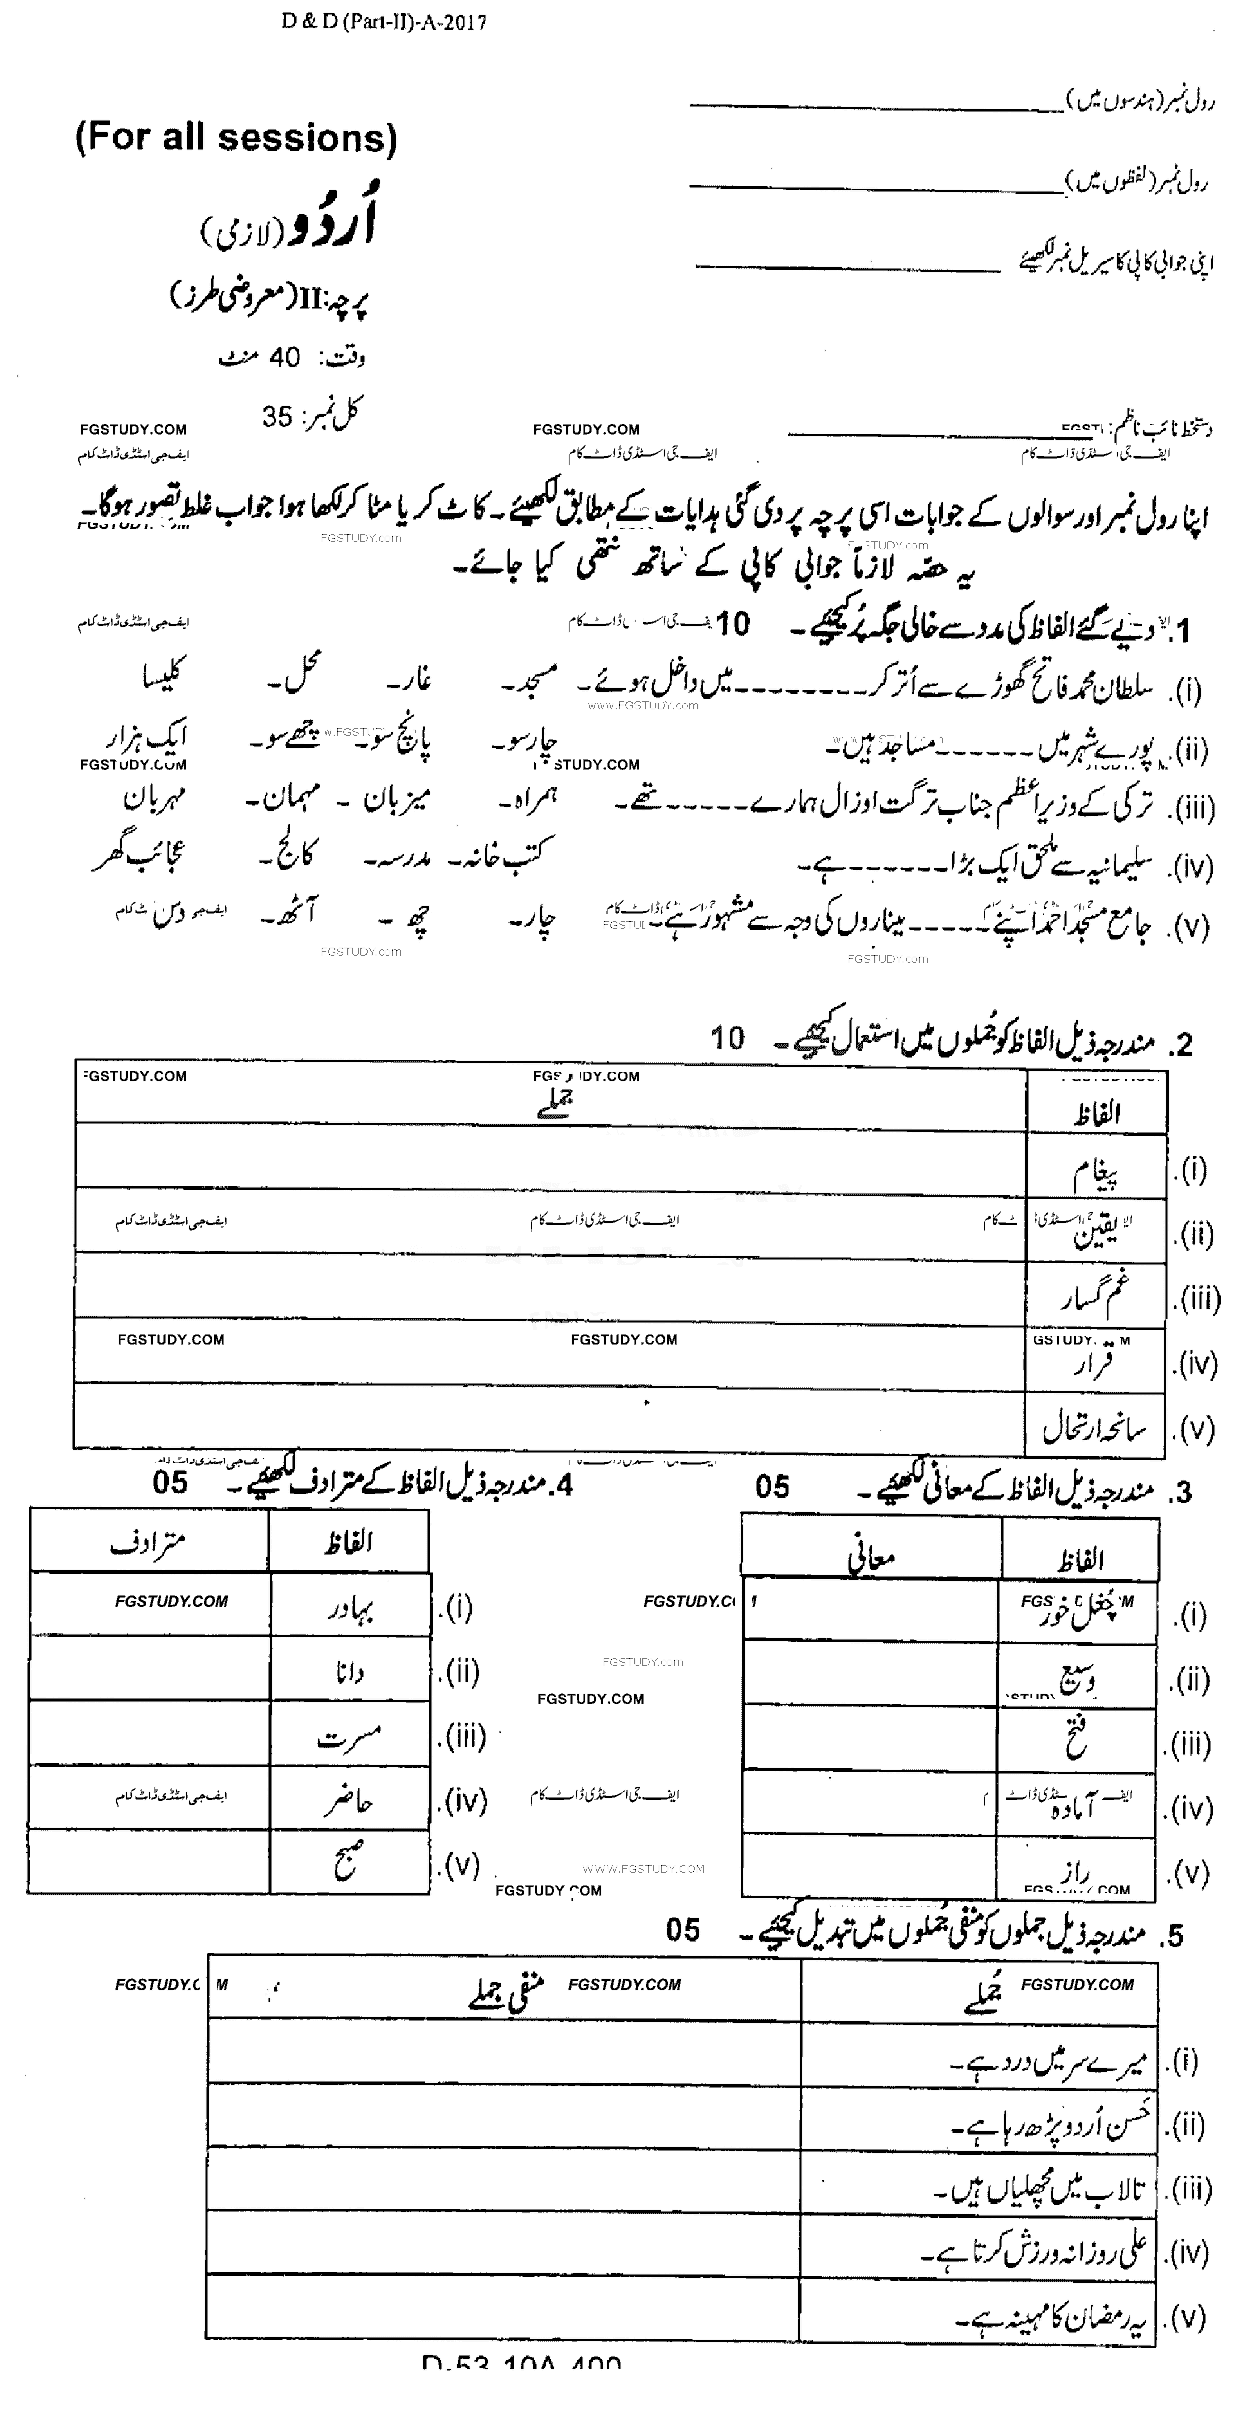 D & D (Part-II)-A-2017
رول نمبر (ہندسوں میں) ____________
(For all sessions)
رول نمبر (لفظوں میں) ____________
اُردُو (لازمی)
اپنی جوابی کاپی کا سیریل نمبر لکھیئے ____________
پرچہ: II (معروضی طرز)
وقت: 40 منٹ
کل نمبر: 35
دستخط نائب ناظم: ____________
FGSTUDY.COM FGSTUDY.COM
ایف جی اسٹڈی ڈاٹ کام ایف جی اسٹڈی ڈاٹ کام ایف جی اسٹڈی ڈاٹ کام
اپنا رول نمبر اور سوالوں کے جوابات اسی پرچہ پر دی گئی ہدایات کے مطابق لکھیئے۔ کاٹ کر یا مٹا کر لکھا ہوا جواب غلط تصور ہوگا۔
یہ حصّہ لازماً جوابی کاپی کے ساتھ نتھی کیا جائے۔
1. دیے گئے الفاظ کی مدد سے خالی جگہ پُر کیجیئے۔ 10
(i). سلطان محمد فاتح گھوڑے سے اُتر کر --------- میں داخل ہوئے۔ مسجد۔ غار۔ محل۔ کلیسا
(ii). پورے شہر میں ------ مساجد ہیں۔ چار سو۔ پانچ سو۔ چھے سو۔ ایک ہزار
(iii). ترکی کے وزیراعظم جناب ترگت اوزال ہمارے ----- تھے۔ ہمراہ۔ میزبان۔ مہمان۔ مہربان
(iv). سلیمانیہ سے ملحق ایک بڑا ------ ہے۔ کتب خانہ۔ مدرسہ۔ کالج۔ عجائب گھر
(v). جامع مسجد احمد اپنے ----- میناروں کی وجہ سے مشہور ہے۔ چار۔ چھ۔ آٹھ۔ دس
2. مندرجہ ذیل الفاظ کو جُملوں میں استعمال کیجیئے۔ 10
الفاظ جملے
(i). پیغام
(ii). یقین
(iii). غم گسار
(iv). قرار
(v). سانحہ ارتحال
3. مندرجہ ذیل الفاظ کے معانی لکھیئے۔ 05
الفاظ معانی
(i). چُغل خور
(ii). وسیع
(iii). فتح
(iv). آمادہ
(v). راز
4. مندرجہ ذیل الفاظ کے مترادف لکھیئے۔ 05
الفاظ مترادف
(i). بہادر
(ii). دانا
(iii). مسرت
(iv). حاضر
(v). صبح
5. مندرجہ ذیل جملوں کو منفی جُملوں میں تبدیل کیجیئے۔ 05
جُملے منفی جملے
(i). میرے سر میں درد ہے۔
(ii). حَسن اُردو پڑھ رہا ہے۔
(iii). تالاب میں مچھلیاں ہیں۔
(iv). علی روزانہ ورزش کرتا ہے۔
(v). یہ رمضان کا مہینہ ہے۔